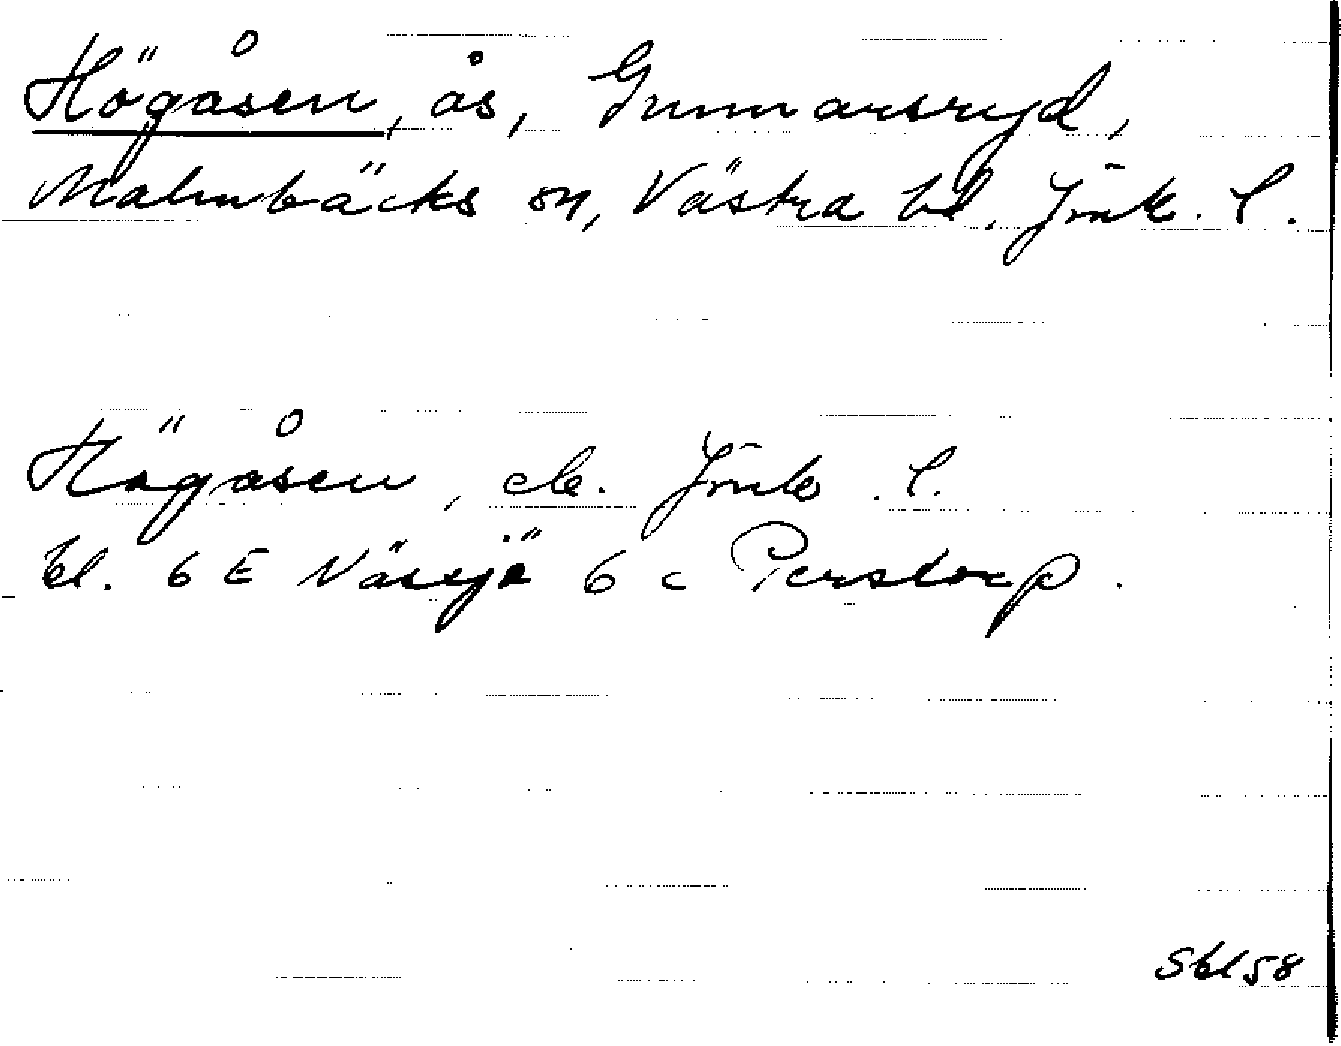 Högåsen, ås, Gunnarsryd,
Malmbäcks sn, Västra hd. Jönk. l.
Högåsen, ek. Jönk. l.
bl. 6 E Nässjö 6 c Perstorp.
Sbl 58